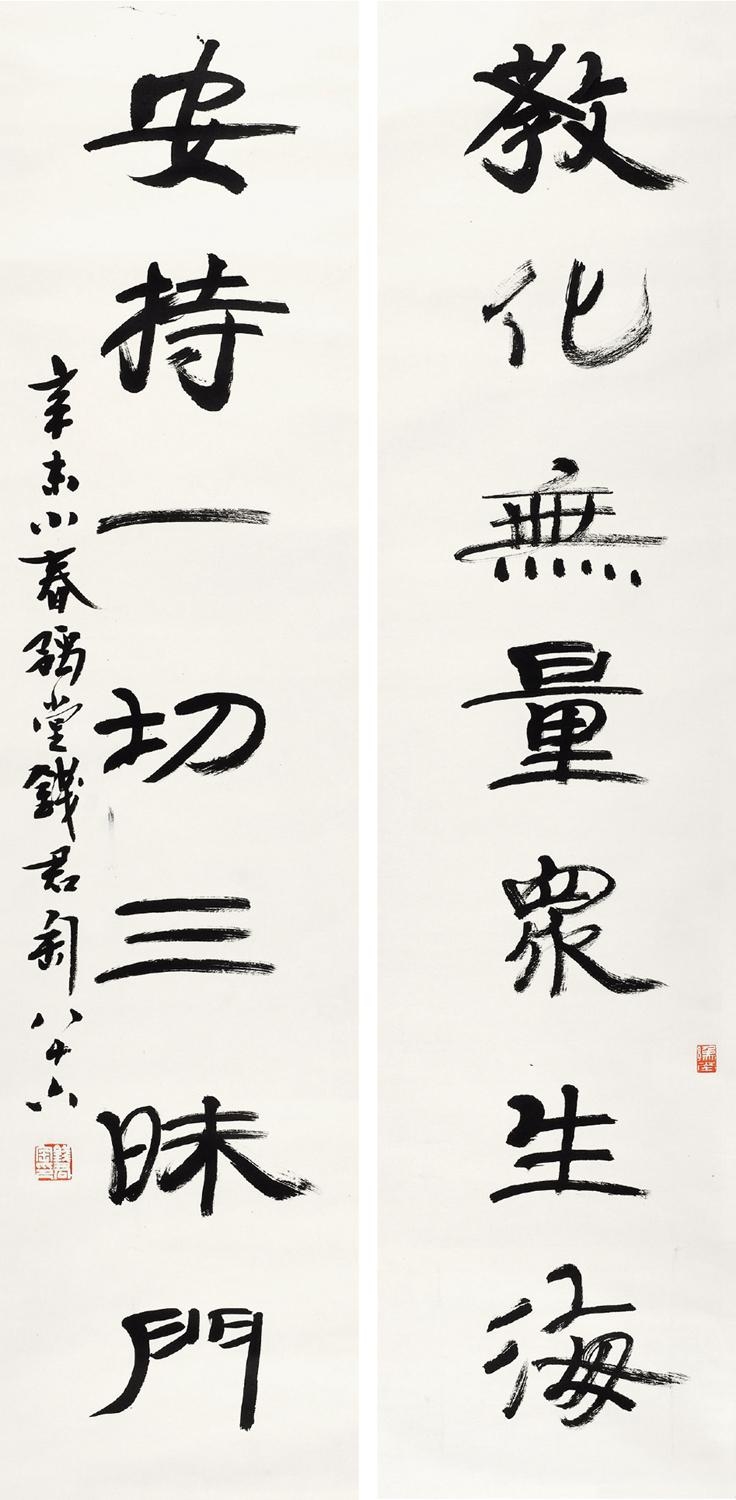 教化無量眾生海
安持一切三昧門
辛未小春豫堂錢君匋八十六